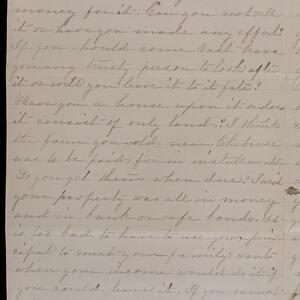 money for it. Can you not sell
it or have you made any effort?
If you should come East have
you any trusty person to look after
it or will you leave it to its fate?
Have you a house upon it or does
it consist of only land? I think
the farm you sold near
was to be paid for in installments.
Do you get them when due? I wish
your property was all in money
and in bank or safe bonds. It
is too bad to have to use your prin-
cipal to meet your family wants
when your income would do it if
you could have it. If you cannot